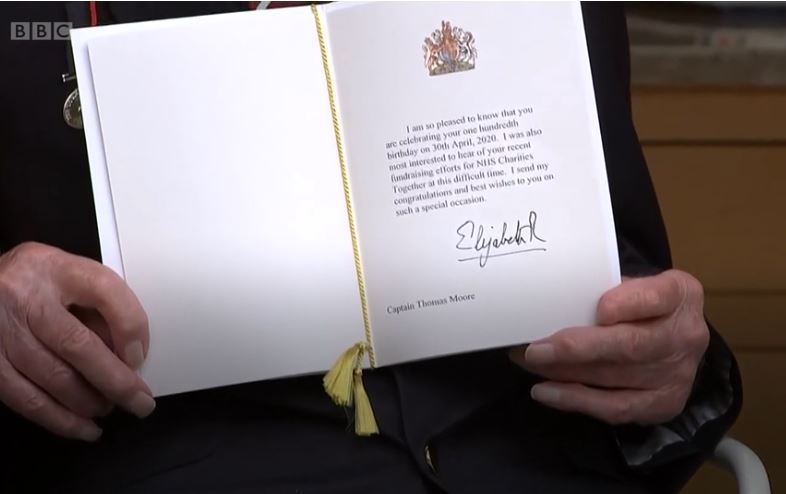 BBC
I am so pleased to know that you
are celebrating your one hundredth
birthday on 30th April, 2020. I was also
most interested to hear of your recent
fundraising efforts for NHS Charities
Together at this difficult time. I send my
congratulations and best wishes to you on
such a special occasion.
Elizabeth R
Captain Thomas Moore